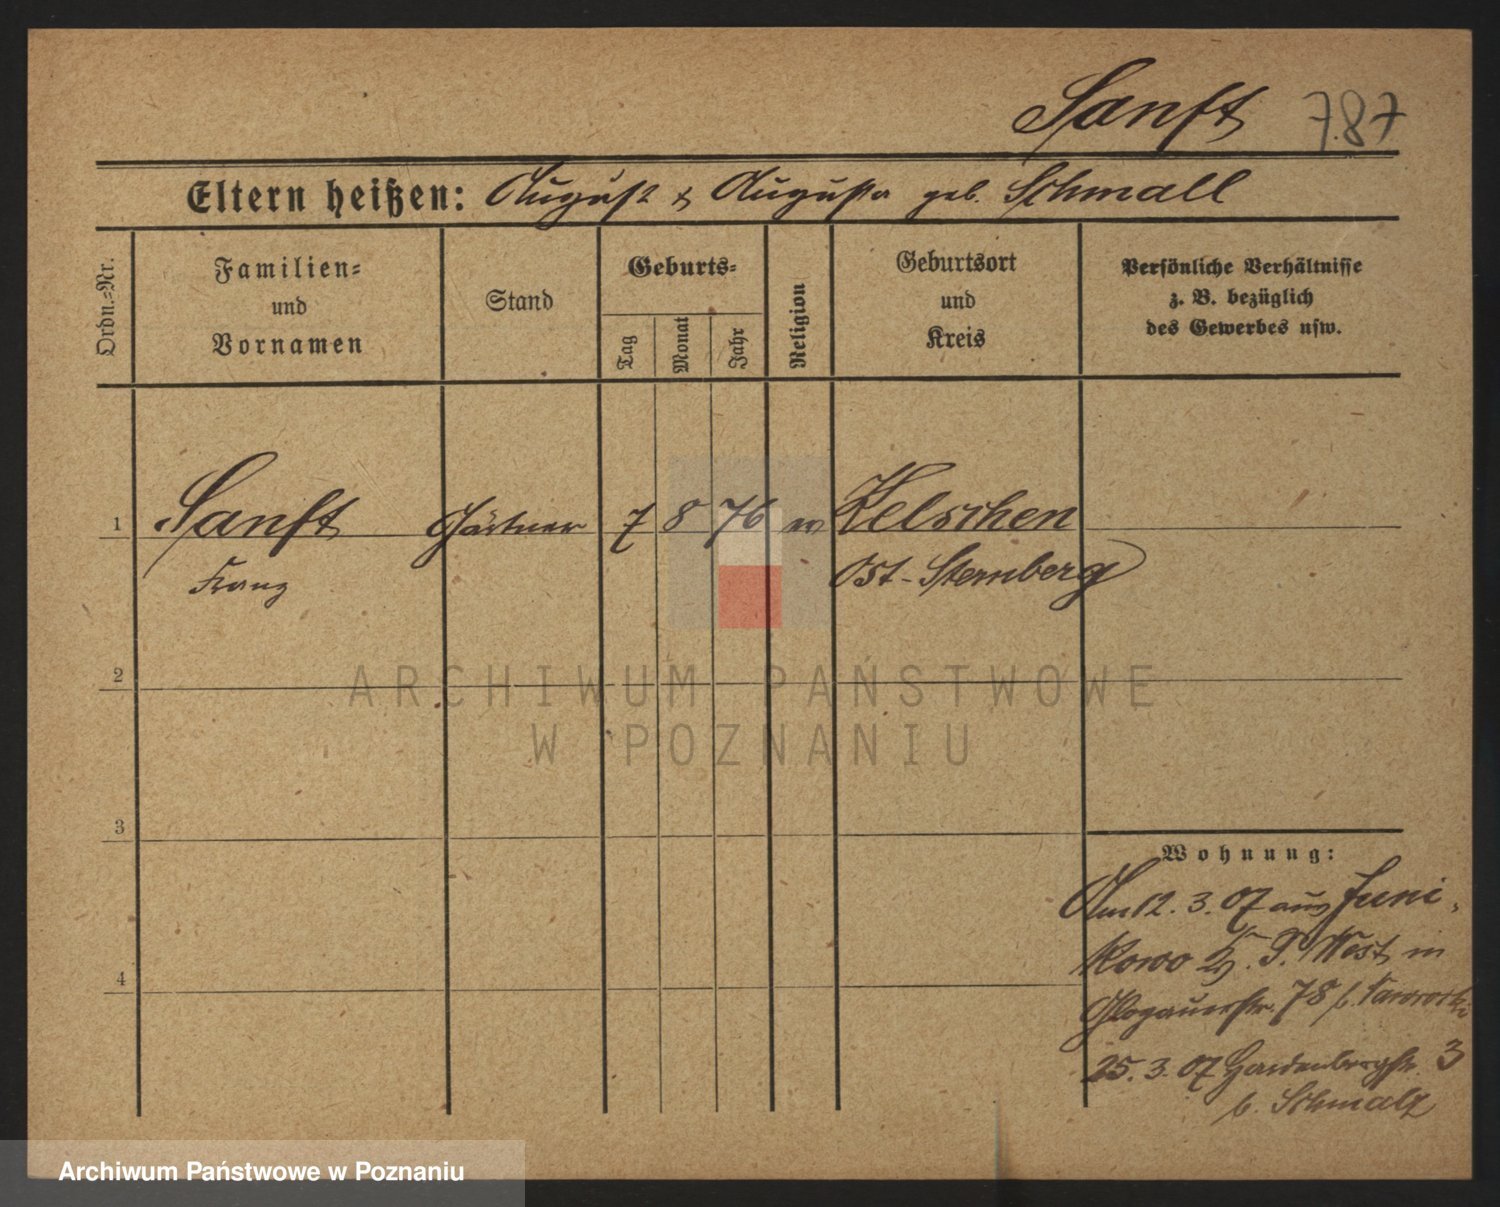 Sanft 787
Eltern heißen: August & Augusta geb. Schmall
Ordn.=Nr.
Familien=
und
Vornamen
Stand
Geburts=
Tag
Monat
Jahr
Religion
Geburtsort
und
Kreis
Persönliche Verhältnisse
z. B. bezüglich
des Gewerbes usw.
1 Sanft Gärtner 7 8 76 ev Zelschen
Franz Ost-Sternberg
2
3
4
Wohnung:
Am 12. 3. 07 aus Juni-
kowo Kr. P. West in
Glogauerstr. 78 b.
25. 3. 07 Hardenbergstr. 3
b. Schmalz
ARCHIWUM PAŃSTWOWE
W POZNANIU
Archiwum Państwowe w Poznaniu